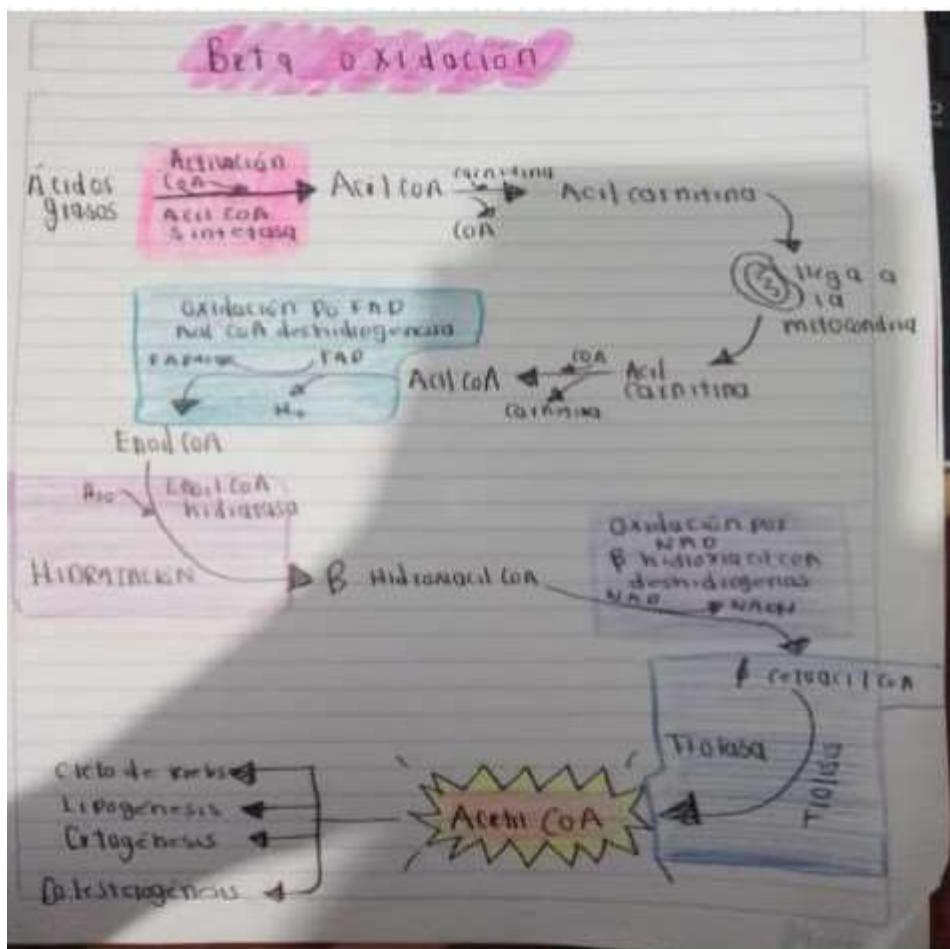 Beta oxidación
Ácidos
grasos
Activación
CoA
Acil CoA
sintetasa
Acil CoA
carnitina
CoA
Acil carnitina
llega a
la
mitocondria
Acil
carnitina
CoA
Carnitina
Acil CoA
Oxidación por FAD
Acil CoA deshidrogenasa
FAD
Enoil CoA
H2O
Enoil CoA
hidratasa
HIDRATACIÓN
β Hidroxiacil CoA
Oxidación por
NAD
β hidroxiacil CoA
deshidrogenas
NAD
NADH
β cetoacil CoA
Tiolasa
Tiolasa
Acetil CoA
Ciclo de krebs
Lipogénesis
Cetogénesis
Colesterogénesis